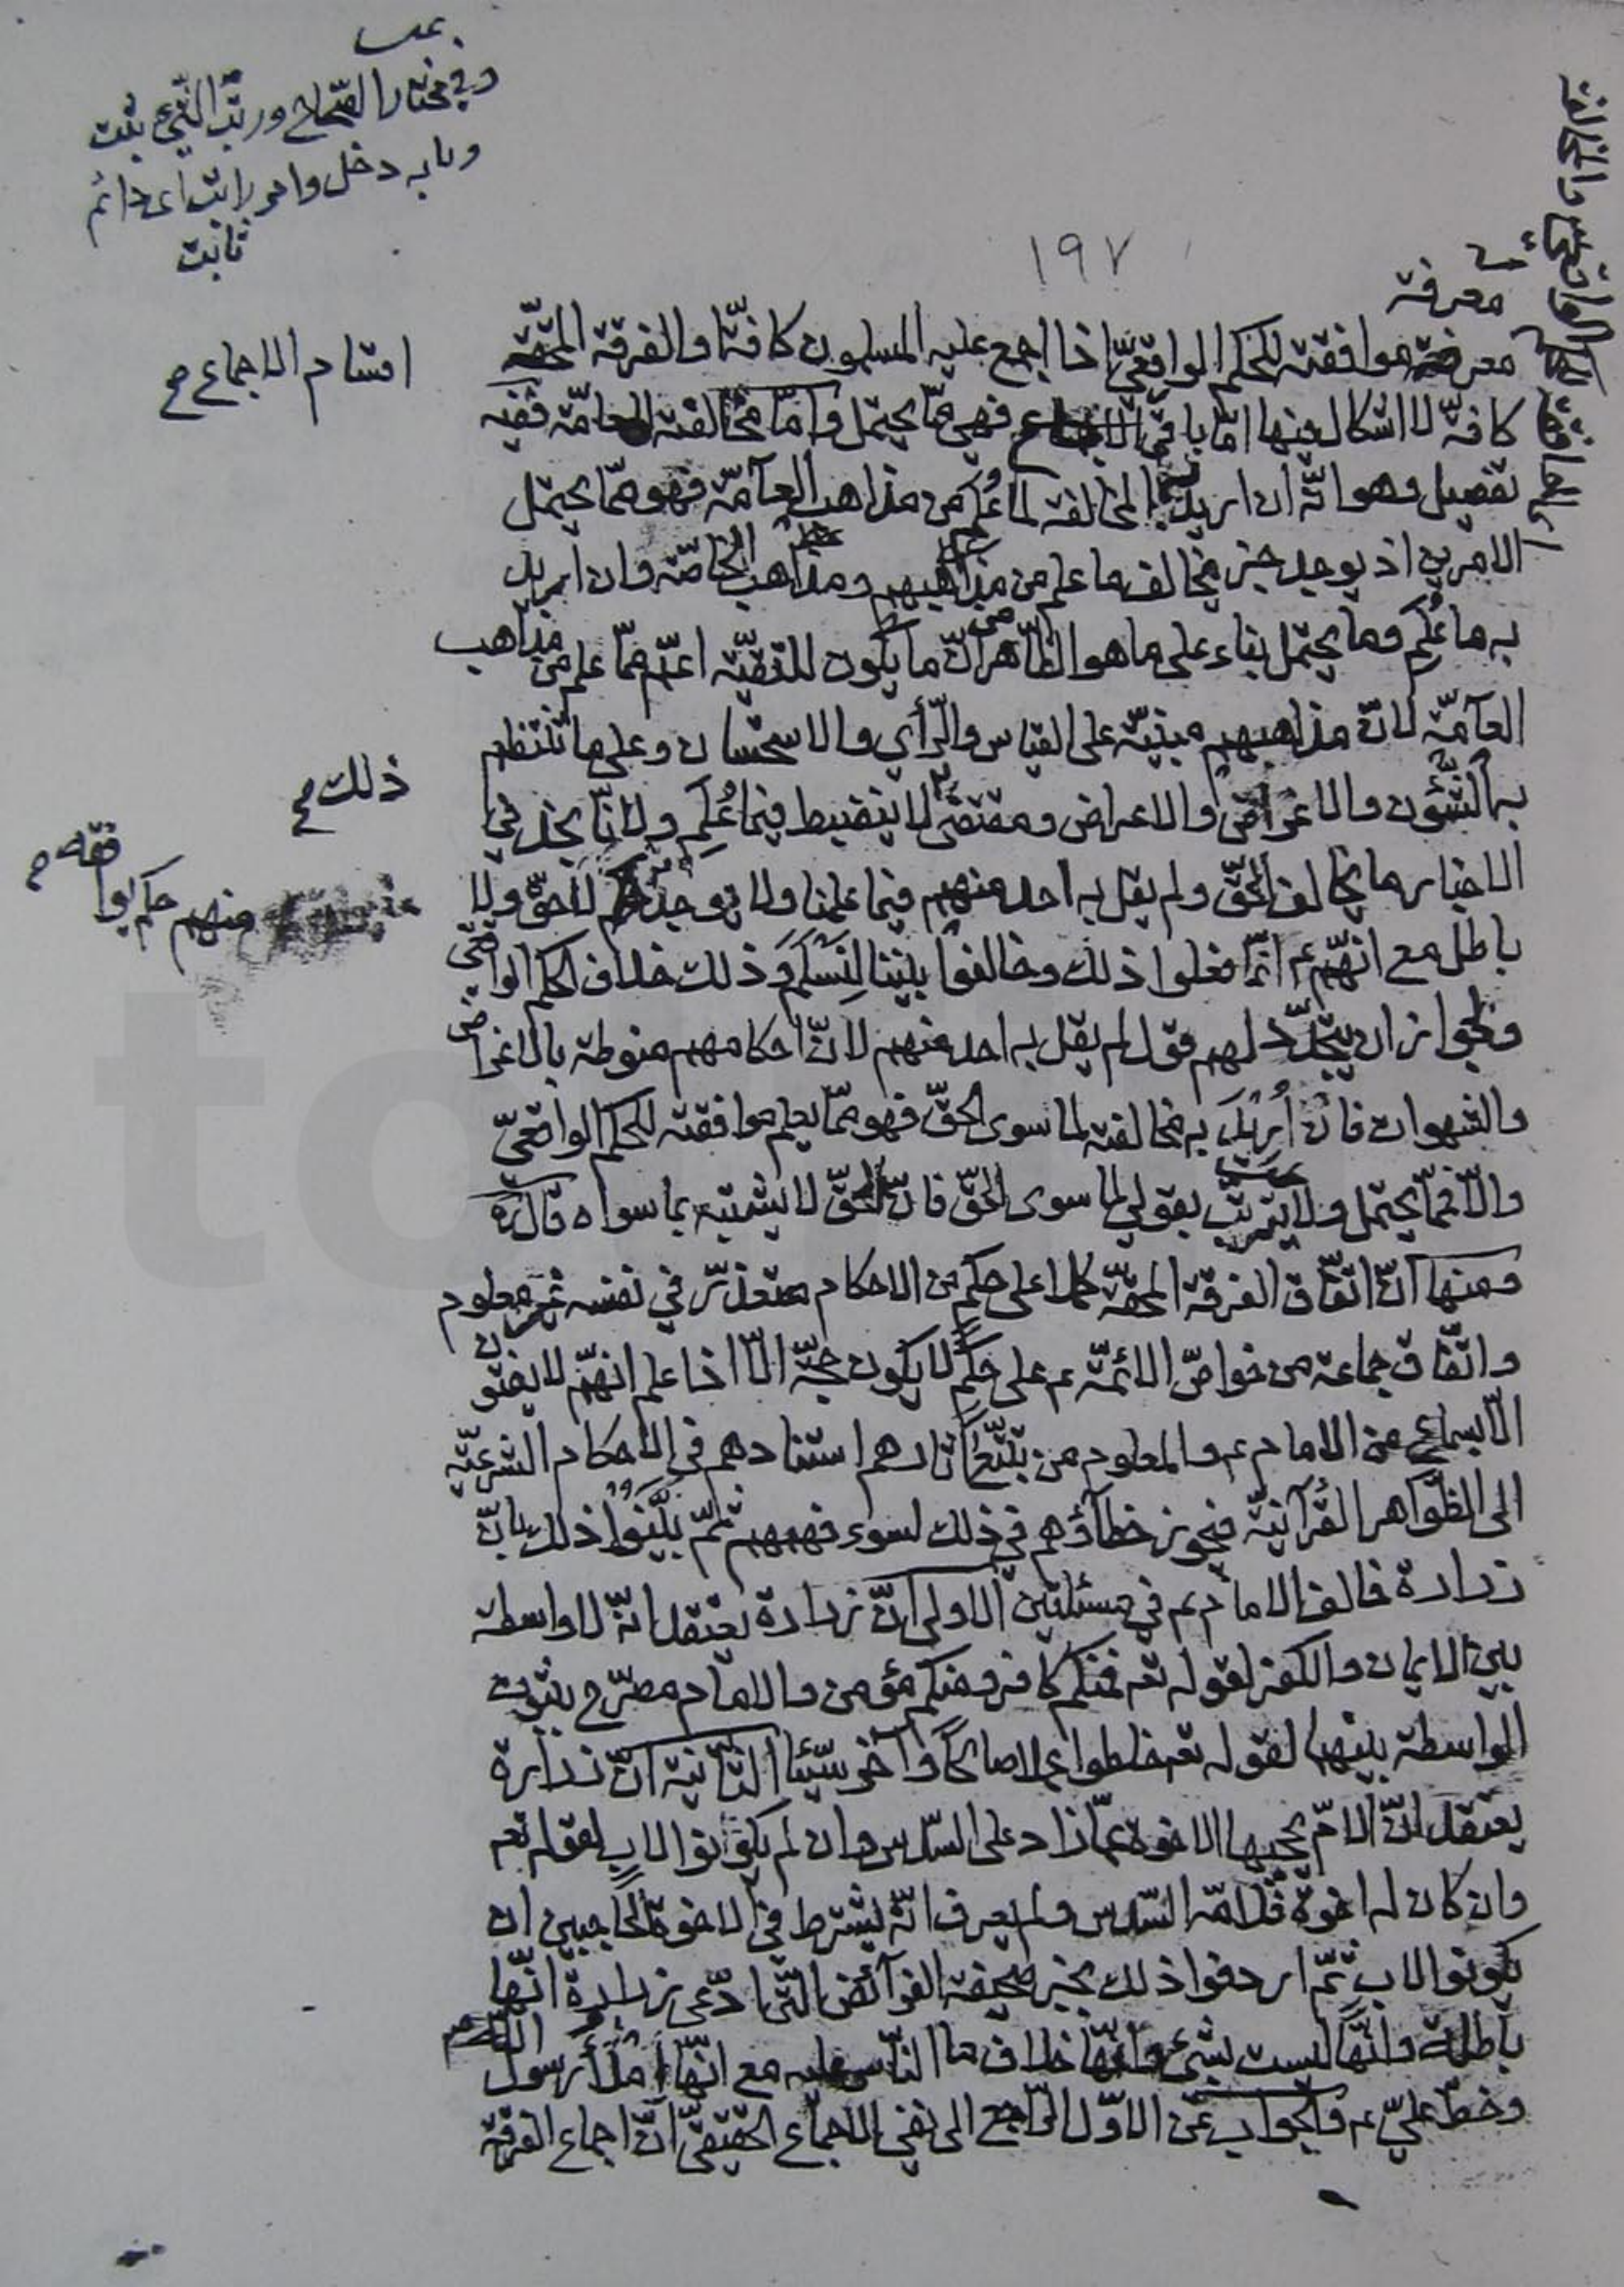 وفي مختار الصحاح ورتب الشيء ثبت
وبابه دخل وامر راتب اي دائم
ثابت
١٩٧
معرفة
معرفة موافقته للحكم الواقعيّ اذا اجمع عليه المسلمون كافّة والفرقة المحقّة
اقسام الاجماع صح
كافّة لا اشكال فيها امّا باقي فهي ممّا يحتمل وامّا مخالفته العامّة ففيه
تفصيل وهو انّه ان اريد المخالفة لما عُلم من مذاهب العآمّة فهو ممّا يحتمل
الامرين اذ يوجد خبر مخالف ما علم من مذاهبهم ومذاهب الخاصّة وان اريد
به ما عُلِم وما يحتمل بناء على ما هو الظّاهر من انّ ما يكون للتقيّة اعمّ ممّا علم من مذاهب
العآمّة لانّ مذاهبهم مبنيّة على القياس والرّأي والاستحسان وعلى ما تنتظم
به الشّئون والاغراض والاعراض ومقتضى ذلك لا ينضبط فيما عُلِم ولانّا نجد في
الاخبار ما يخالف الحقّ ولم يقل به احد منهم فيما علمنا ولا يوجد لا حقّ ولا
منهم حكم يوافقه صح
باطل مع انّهم ع انّما فعلوا ذلك وخالفوا بيننا لنسلم وذلك خلاف الحكم الواقعي
ولجواز ان يتجدّد لهم قول لم يقل به احد منهم لانّ احكامهم منوطة بالاغراض
والشهوات فان اُريد به مخالفته لما سوى الحقّ فهو ممّا يعلم موافقته للحكم الواقعيّ
والّا فممّا يحتمل ولا بقولي لما سوى الحقّ فانّ الحقّ لا يشتبه بما سواه قال ره
ومنها انّ اتّفاق الفرقة المحقّة كملا على حكم من الاحكام متعذّر في نفسه غير معلوم
واتّفاق جماعة من خواصّ الائمّة ع على حكم لا يكون حجّة الّا اذا علم انّهم لا يفتون
الّا بسماع من الامام ع والمعلوم من تتبّع آثارهم استنادهم في الاحكام الشرعيّة
الى الظّواهر القرآنيّة فيجوز خطآؤهم في ذلك لسوء فهمهم ثمّ بيّنوا ذلك بانّ
زرارة خالف الامام ع في مسئلتين الاولى انّ زرارة يعتقد انّه لا واسطة
بين الايمان والكفر لقوله تع فمنكم كافر ومنكم مؤمن والامام مصرّح بثبوت
الواسطة بينهما لقوله تع خلطوا عملا صالحًا وآخر سيّئا الثانية انّ زرارة
يعتقد انّ الامّ يحجبها الاخوة عمّا زاد على السّدس وان لم يكونوا لاب لقوله تع
وان كان له اخوة فلامّه السّدس ولم يعرف انّه يشترط في الاخوة الحاجبين ان
يكونوا لاب ثمّ اردفوا ذلك بخبر صحيفة الفرآئض الّتي ادّعى زرارة انّها
باطلة وانّها ليست بشيء وانّها خلاف ما النّاس عليه مع انّها املآء رسول الله ص
وخطّ عليّ ع والجواب عن الاوّل الرّاجع الى نفي الاجماع الحقيقيّ انّ اجماع الفرقة